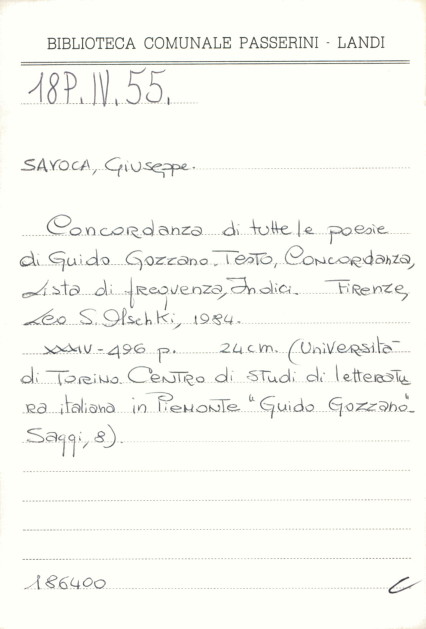 BIBLIOTECA COMUNALE PASSERINI - LANDI
18P.IV.55.
SAVOCA, Giuseppe.
Concordanza di tutte le poesie
di Guido Gozzano. Testo, Concordanza,
Lista di frequenza, Indici. Firenze,
Leo S. Olschki, 1984.
XXXIV-496 p. 24cm. (Università
di Torino. Centro di studi di lettératu
ra italiana in Piemonte "Guido Gozzano".
Saggi, 8).
186400